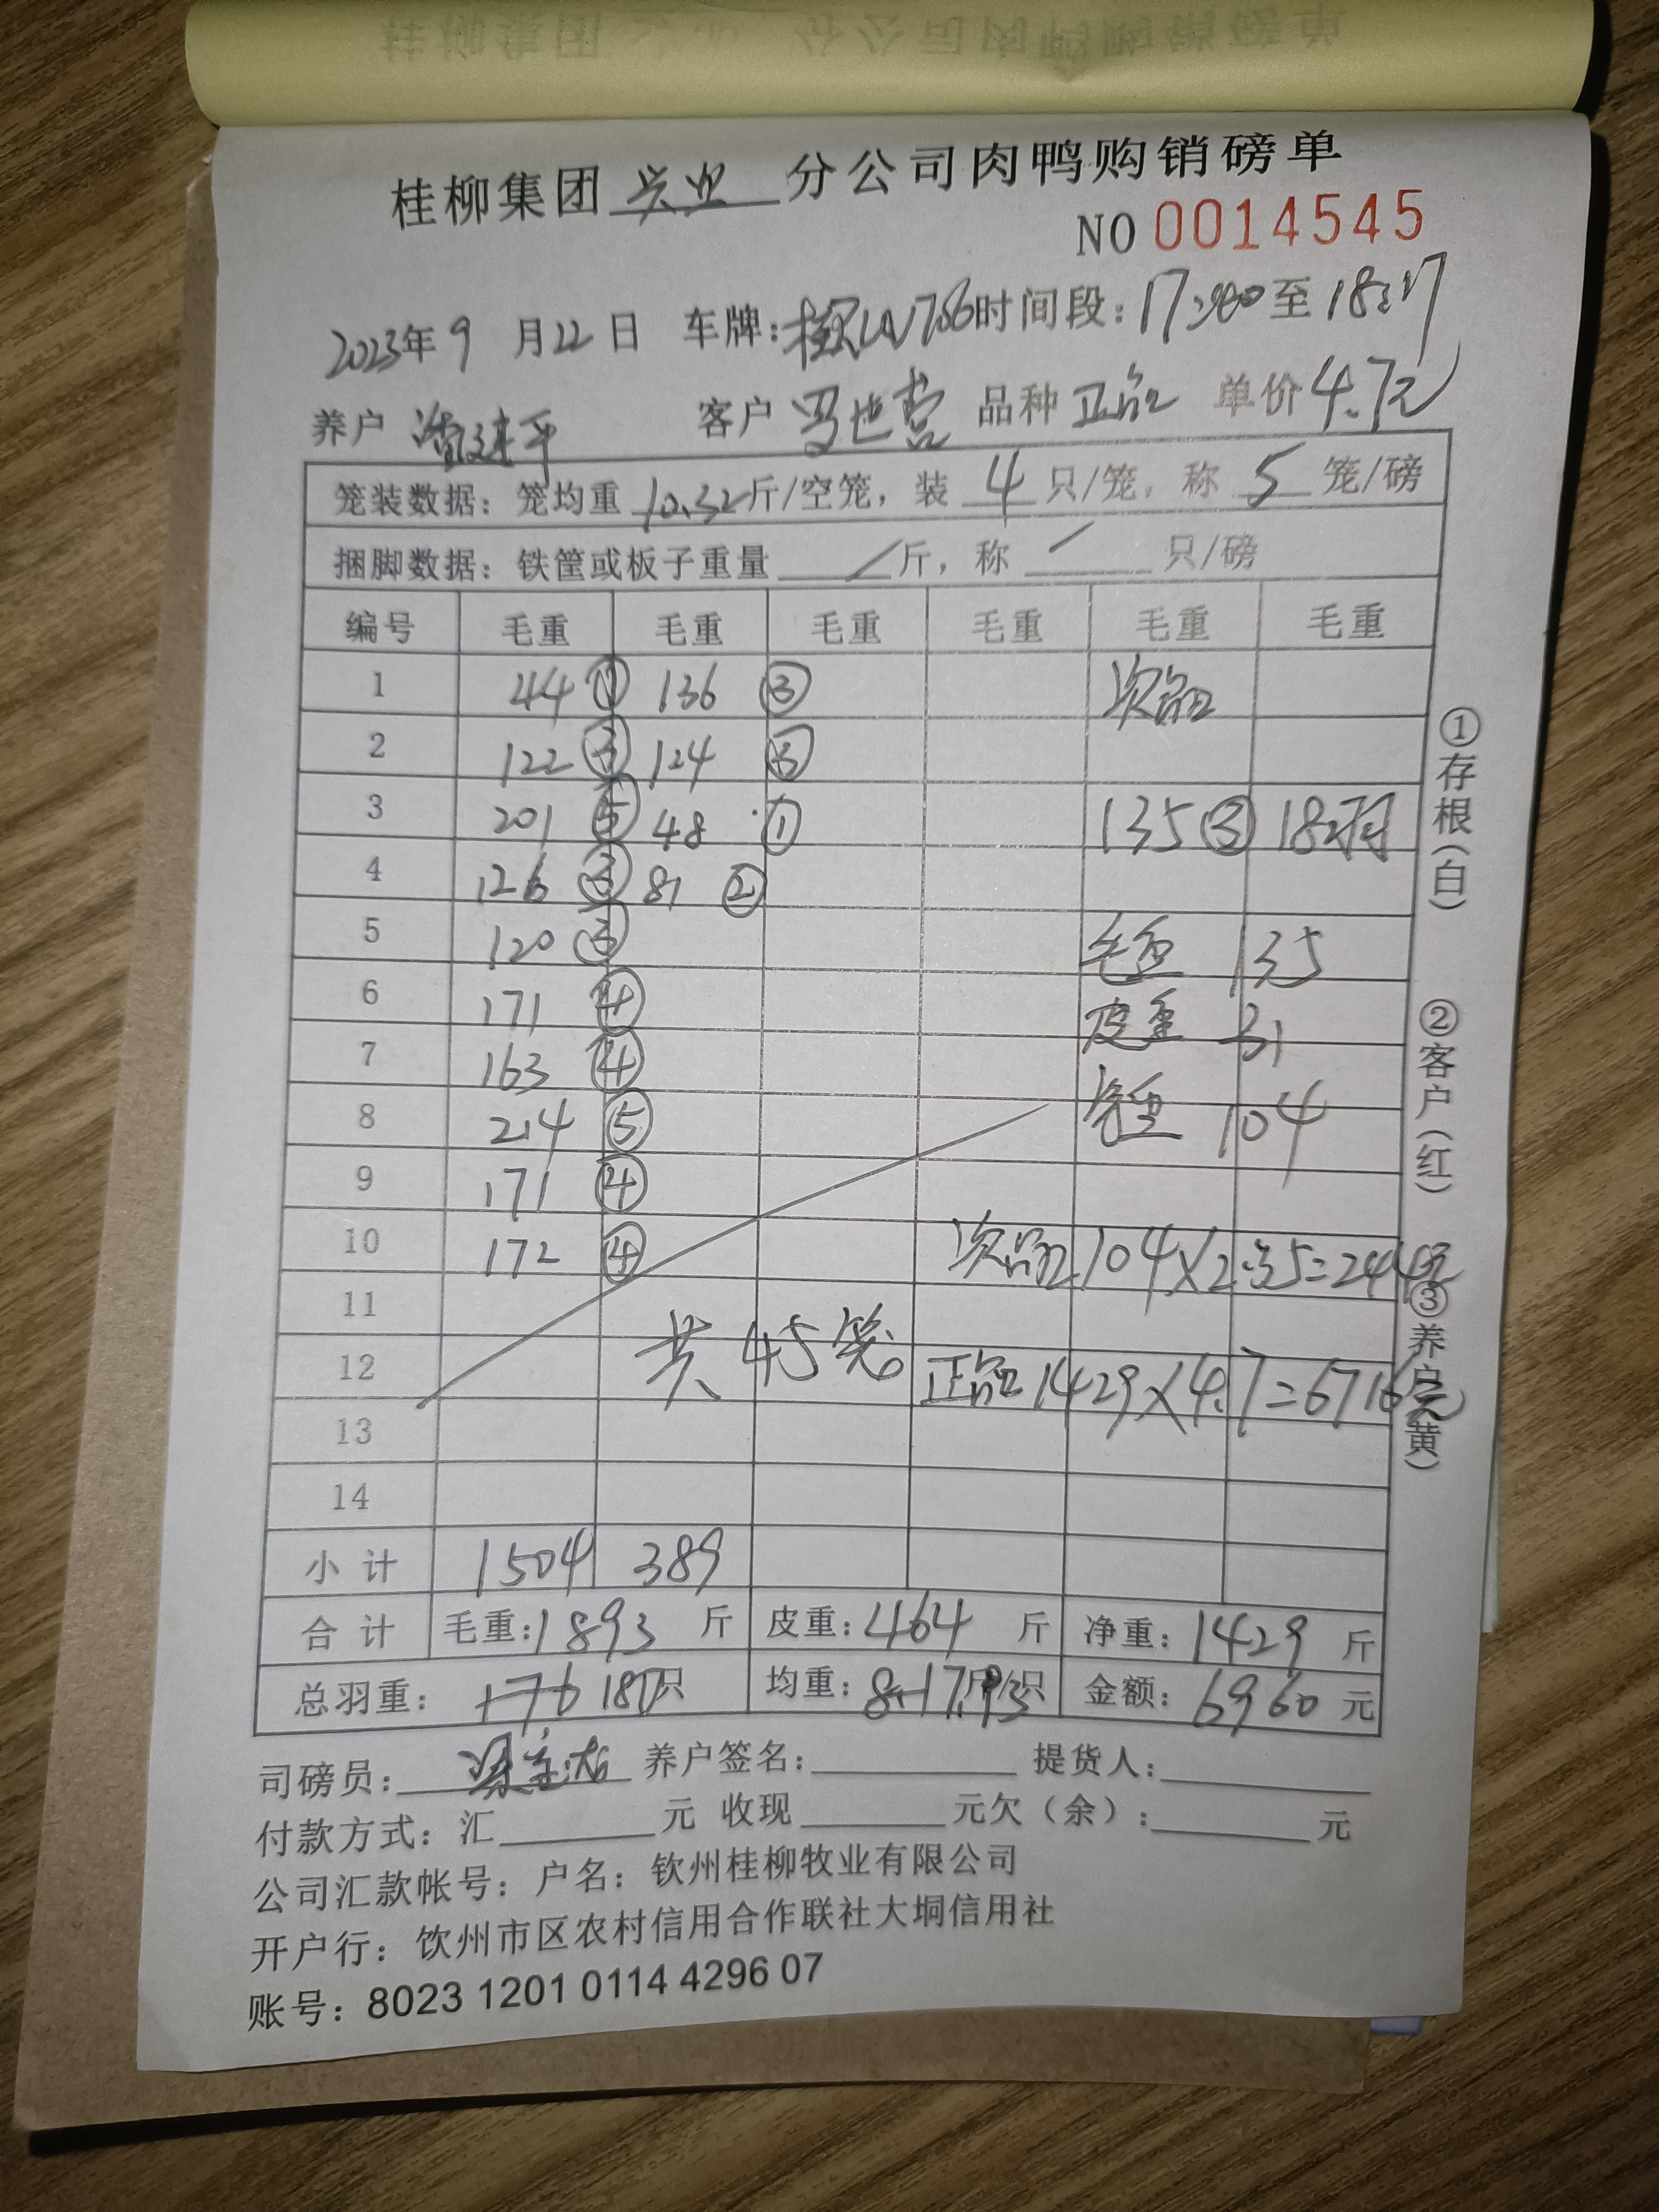 桂柳集团兴业分公司肉鸭购销磅单
NO 0014545
2023年9月22日 车牌: 时间段: 至
养户 客户 罗世营 品种 正品 单价 4.7元
笼装数据: 笼均重 10.32 斤/空笼, 装 4 只/笼, 称 5 笼/磅
捆脚数据: 铁筐或板子重量 / 斤, 称 / 只/磅
编号 毛重 毛重 毛重 毛重 毛重 毛重
1 44 ① 136 ③ 次品
2 122 ③ 124 ③
3 201 ⑤ 48 ① 135 ③ 18羽
4 126 ③ 81 ②
5 120 ③ 毛重 135
6 171 ④ 皮重 31
7 163 ④ 净重 104
8 214 ⑤
9 171 ④
10 172 ④ 次品 104×2.35=244元
11
12 共45笼 正品 1429×4.7=6716元
13
14
小计 1504 389
合计 毛重: 1893 斤 皮重: 464 斤 净重: 1429 斤
总羽重: 176 180 只 均重: 8.1 7.93 斤/只 金额: 6960 元
司磅员: 养户签名: 提货人:
付款方式: 汇 元 收现 元欠(余): 元
公司汇款帐号: 户名: 钦州桂柳牧业有限公司
开户行: 钦州市区农村信用合作联社大垌信用社
账号: 8023 1201 0114 4296 07
①存根(白) ②客户(红) ③养户(黄)